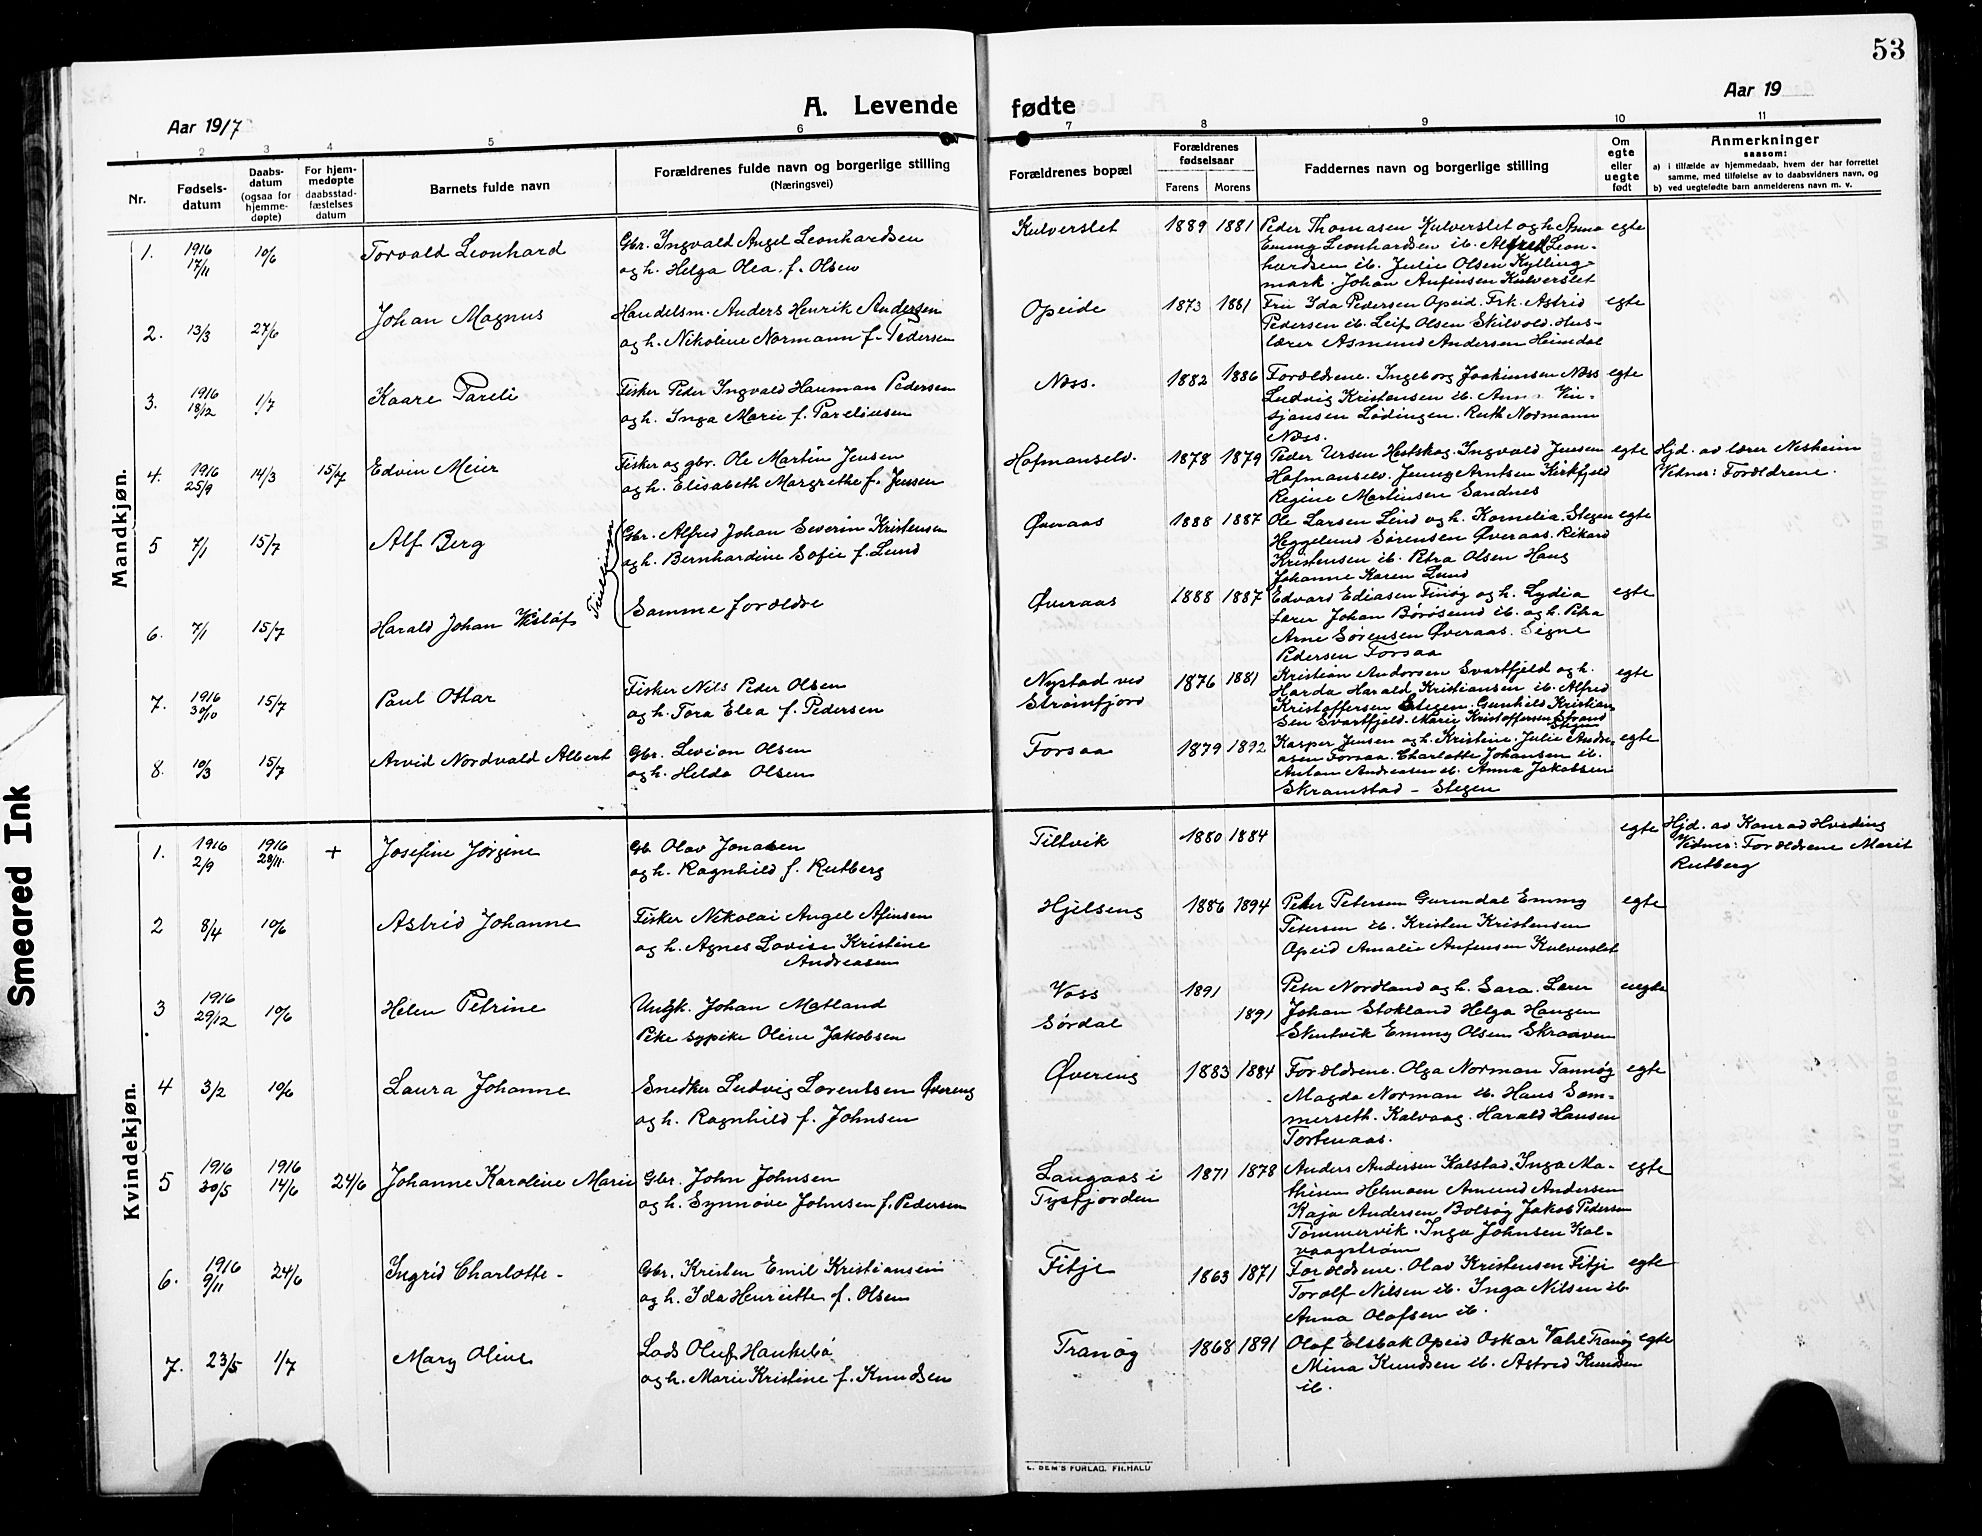 53
A. Levende fødte
Aar 1917
Aar 19
1 2 3 4 5 6 7 8 9 10 11
Nr.
Fødsels-
datum
Daabs-
datum
(ogsaa for
hjemme-
døpte)
For hjem-
medøpte
daabsstad-
fæstelses
datum
Barnets fulde navn
Forældrenes fulde navn og borgerlige stilling
(Næringsvei)
Forældrenes bopæl
Forældrenes
fødselsaar
Farens Morens
Faddernes navn og borgerlige stilling
Om
egte
eller
uegte
født
Anmerkninger
saasom:
a) i tilfælde av hjemmedaab, hvem der har forrettet
samme, med tilføielse av to daabsvidners navn, og
b) ved uegtefødte barn anmelderens navn m. v.
Mandkjøn.
1. 1916 17/11 10/6 Torvald Leonhard
Gbr. Ingvald Angel Leonhardsen
og h. Helga Olea f. Olsen
Kulverslet 1889 1881
Peder Thomasen Kulverslet og h. Anna
Emmy Leonhardsen ib. Alfred Leon-
hardsen ib. Julie Olsen Kylling-
mark. Johan Anfinsen Kulverslet
egte
2. 13/3 27/6 Johan Magnus
Handelsm. Anders Henrik Andersen
og h. Nikoline Normann f. Pedersen
Opeide 1873 1881
Fru Ida Pedersen Opeid. Frk. Astrid
Pedersen ib. Leif Olsen Skilvold. Hus-
lærer Asmund Andersen Heimdal
egte
3. 1916 18/12 1/7 Kaare Pareli
Fisker Peder Ingvald Hauman Pedersen
og h. Inga Marie f. Pareliusen
Næss. 1882 1886
Forældrene. Ingeborg Joakimsen Næss
Ludvig Kristensen ib. Anna Vin-
sjansen Lødingen. Ruth Normann
Næss.
egte
4. 1916 25/9 14/3 15/7 Edvin Meier
Fisker og gbr. Ole Martin Jensen
og h. Elisabeth Margrethe f. Jensen
Hofmanselv. 1878 1879
Peder Ursen Hestskog. Ingvald Jensen
Hofmanselv. Jenny Arntsen Kirkfjeld
Regine Martinsen Sandnes
egte
Hjd. av lærer Nesheim
Vidner: Forældrene.
5 7/1 15/7 Alf Berg
Tvillinger
Gbr. Alfred Johan Severin Kristensen
og h. Bernhardine Sofie f. Lund
Øveraas 1888 1887
Ole Larsen Lind og h. Kornelia. Stegen
Heggelund Sørensen Øveraas. Rikard
Kristensen ib. Petra Olsen Haug
Johanne Karen Lund
egte
6. 7/1 15/7 Harald Johan Visløf
Samme forældre
Øveraas 1888 1887
Edvard Ediasen Finøy og h. Lydia
Lærer Johan Børøsund ib. og h. Petra
Arne Sørensen Øveraas. Signe
Pedersen Forsaa
egte
7. 1916 30/10 15/7 Paul Ottar
Fisker Nils Peder Olsen
og h. Tora Elea f. Pedersen
Nystad ved
Strømfjord
1876 1881
Kristian Andorsen Svartfjeld og h.
Harda Harald Kristiansen ib. Alfred
Kristoffersen Stegen. Gunhild Kristian
sen Svartfjeld. Marie Kristoffersen Strand
Stegen
egte
8. 10/3 15/7 Arvid Nordvald Albert
Gbr. Levion Olsen
og h. Helda Olsen
Forsaa 1879 1892
Kasper Jensen og h. Kristine. Julie Andre-
asen Forsaa. Charlotte Johansen ib.
Anton Andreasen ib. Anna Jakobsen
Skramstad - Stegen
egte
Kvindekjøn.
1. 1916 2/9 1916 28/11 + Josefine Jørgine
Gb. Olav Jonasen
og h. Ragnhild f. Rutberg
Tiltvik 1880 1884
egte
Hjd. av Konrad Hveding
Vidner: Forældrene Marit
Rutberg
2 8/4 10/6 Astrid Johanne
Fisker Nikolai Angel Afinsen
og h. Agnes Lovise Kristine
Andreasen
Hjelseng 1886 1894
Peter Petersen Gurendal Emmy
Petersen ib. Kristen Kristensen
Opeid Amalie Anfensen Kulverslet
egte
3 1916 29/12 10/6 Helen Petrine
Ungk. Johan Matland
Pike sypike Oline Jakobsen
Voss
Sørdal
1891
1891
Peter Nordland og h. Sara. Lærer
Johan Stokland Helga Haugen
Skutvik Emmy Olsen Skraaven
uegte
4 3/2 10/6 Laura Johanne
Snedker Ludvig Lorentsen Øvereng
og h. Ragnhild f. Johnsen
Øvereng 1883 1884
Forældrene. Olga Norman Tannøy
Magda Norman ib. Hans Som-
merseth. Kalvaag. Harald Hansen
Tortenaas.
egte
5 1916 30/5 1916 14/6 24/6 Johanne Karoline Marie
Gbr. John Johnsen
og h. Synnøve Johnsen f. Pedersen
Langaas i
Tysfjorden
1871 1878
Anders Andersen Kalstad. Inga Ma-
thisen Helmoen Amund Andersen
Kaja Andersen Bolsøy Jakob Pedersen
Tømmervik. Inga Johnsen Kal-
vaagstrøm
egte
6. 1916 9/11 24/6 Ingrid Charlotte -
Gbr. Kristen Emil Kristiansen
og h. Ida Henriette f. Olsen
Fitje 1863 1871
Forældrene. Olav Kristensen Fitje
Torolf Nilsen ib. Inga Nilsen ib
Anna Olofsen ib.
egte
7. 23/5 1/7 Mary Oline
Lods Oluf Haukebø
og h. Marie Kristine f. Knudsen
Tranøy 1868 1891
Olaf Elsbak Opeid Oskar Vahl Tranøy
Mina Knudsen ib. Astrid Knudsen
ib.
egte
E. SEM'S FORLAG. FR.HALD
Smeared Ink